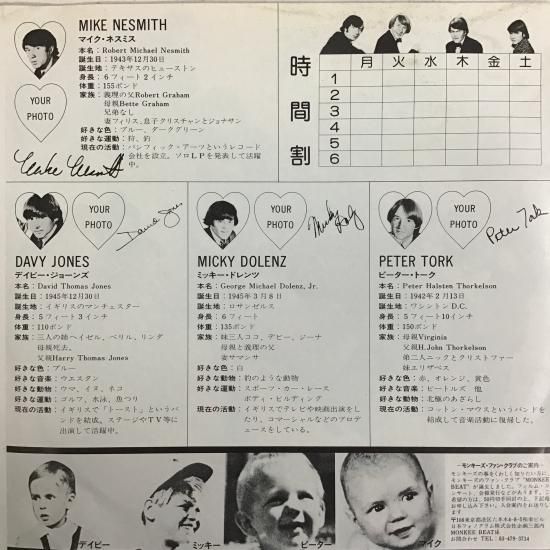 MIKE NESMITH
マイク・ネスミス
本名：Robert Michael Nesmith
誕生日：1943年12月30日
誕生地：テキサスのヒューストン
身長：6フィート2インチ
体重：155ポンド
家族：義理の父Robert Graham
母親Bette Graham
兄弟なし
妻フィリス、息子クリスチャンとジョナサン
好きな色：ブルー、ダークグリーン
好きな運動：狩、釣
現在の活動：パシフィック・アーツというレコード
会社を設立。ソロLPを発表して活躍
中。
YOUR
PHOTO
時間割
月 火 水 木 金 土
1
2
3
4
5
6
YOUR
PHOTO
David Jones
DAVY JONES
デイビー・ジョーンズ
本名：David Thomas Jones
誕生日：1945年12月30日
誕生地：イギリスのマンチェスター
身長：5フィート3インチ
体重：110ポンド
家族：三人の姉ヘイゼル、ベリル、リンダ
母親死去。
父親Harry Thomas Jones
好きな色：ブルー
好きな音楽：ウエスタン
好きな動物：ウマ、イヌ、ネコ
好きな運動：ゴルフ、水泳、魚つり
現在の活動：イギリスで「トースト」というバ
ンドを結成。ステージやTV等に
出演して活躍中。
YOUR
PHOTO
Micky Dolenz
MICKY DOLENZ
ミッキー・ドレンツ
本名：George Michael Dolenz, Jr.
誕生日：1945年3月8日
誕生地：ロサンゼルス
身長：6フィート
体重：135ポンド
家族：妹三人ココ、デビー、ジーナ
母親と義理の父
妻サマンサ
好きな色：白
好きな動物：豹のような動物
好きな運動：スポーツ・カー・レース
ボディ・ビルディング
現在の活動：イギリスでテレビや映画出演をし
たり、コマーシャルなどのプロデ
ュースをしている。
YOUR
PHOTO
Peter Tork
PETER TORK
ピーター・トーク
本名：Peter Halsten Thorkelson
誕生日：1942年2月13日
誕生地：ワシントンD.C.
身長：5フィート10インチ
体重：150ポンド
家族：母親Virginia
父親H.John Thorkelson
弟二人ニックとクリストファー
妹エリザベス
好きな色：赤、オレンジ、黄色
好きな音楽：ビートルズ 他
好きな動物：北極のあざらし
現在の活動：コットン・マウスというバンドを
結成して音楽活動に復帰した。
デイビー
ミッキー
ピーター
マイク
―モンキーズ・ファン・クラブのご案内―
モンキーズの事をくわしく知りたい方に、モ
ンキーズのファン・クラブ"MONKEE
BEAT"が誕生しました。フィルム・コ
MONKEE BEAT係
お問合わせ TEL 03-479-3714